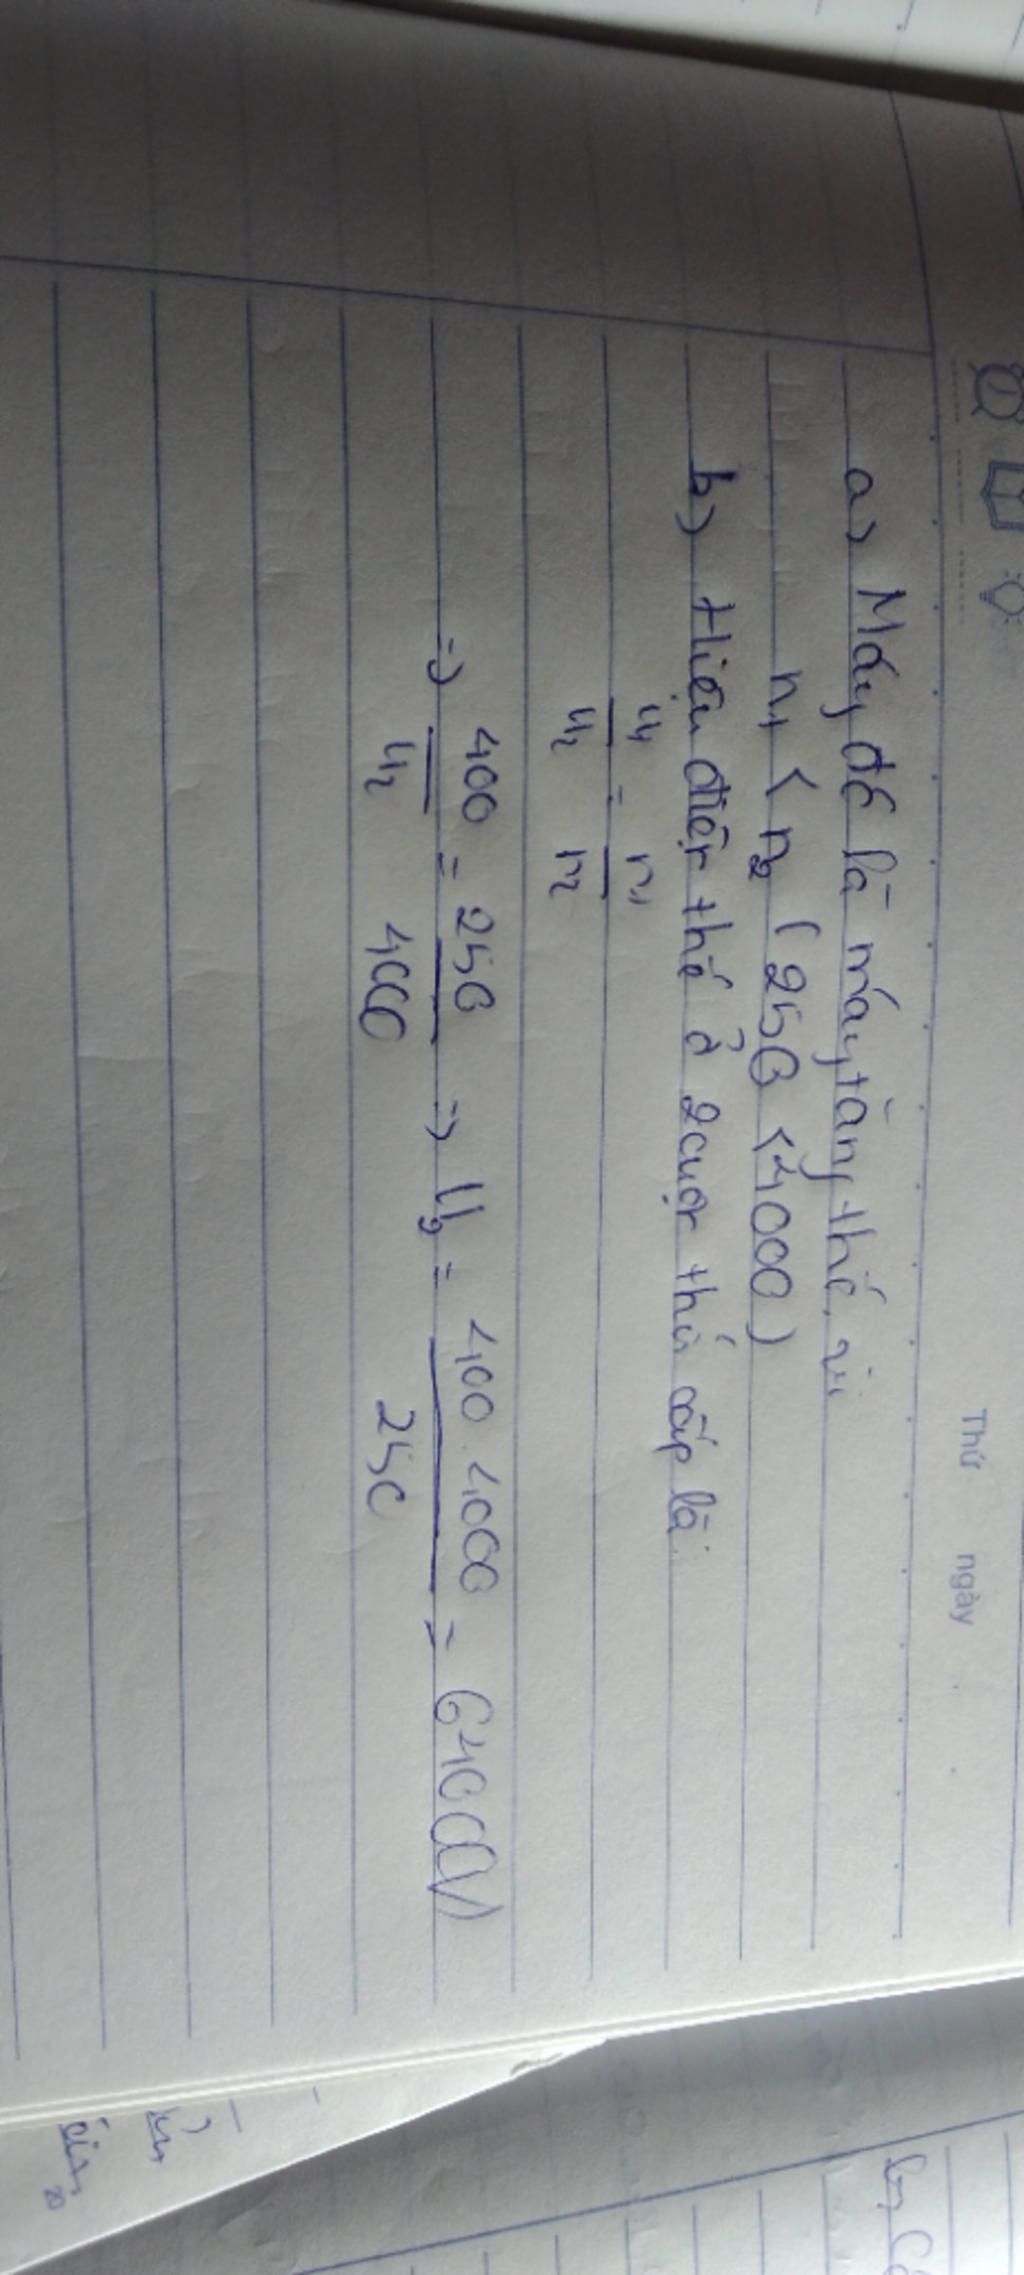 Thứ ngày
a) Máy đó là máy tăng thế, vì
n1 < n2 (250 < 4000)
b) Hiệu điện thế ở 2 cuộn thứ cấp là:
U1/U2 = n1/n2
=> 400/U2 = 250/4000 => U2 = 400.4000/250 = 6400(V)
b,